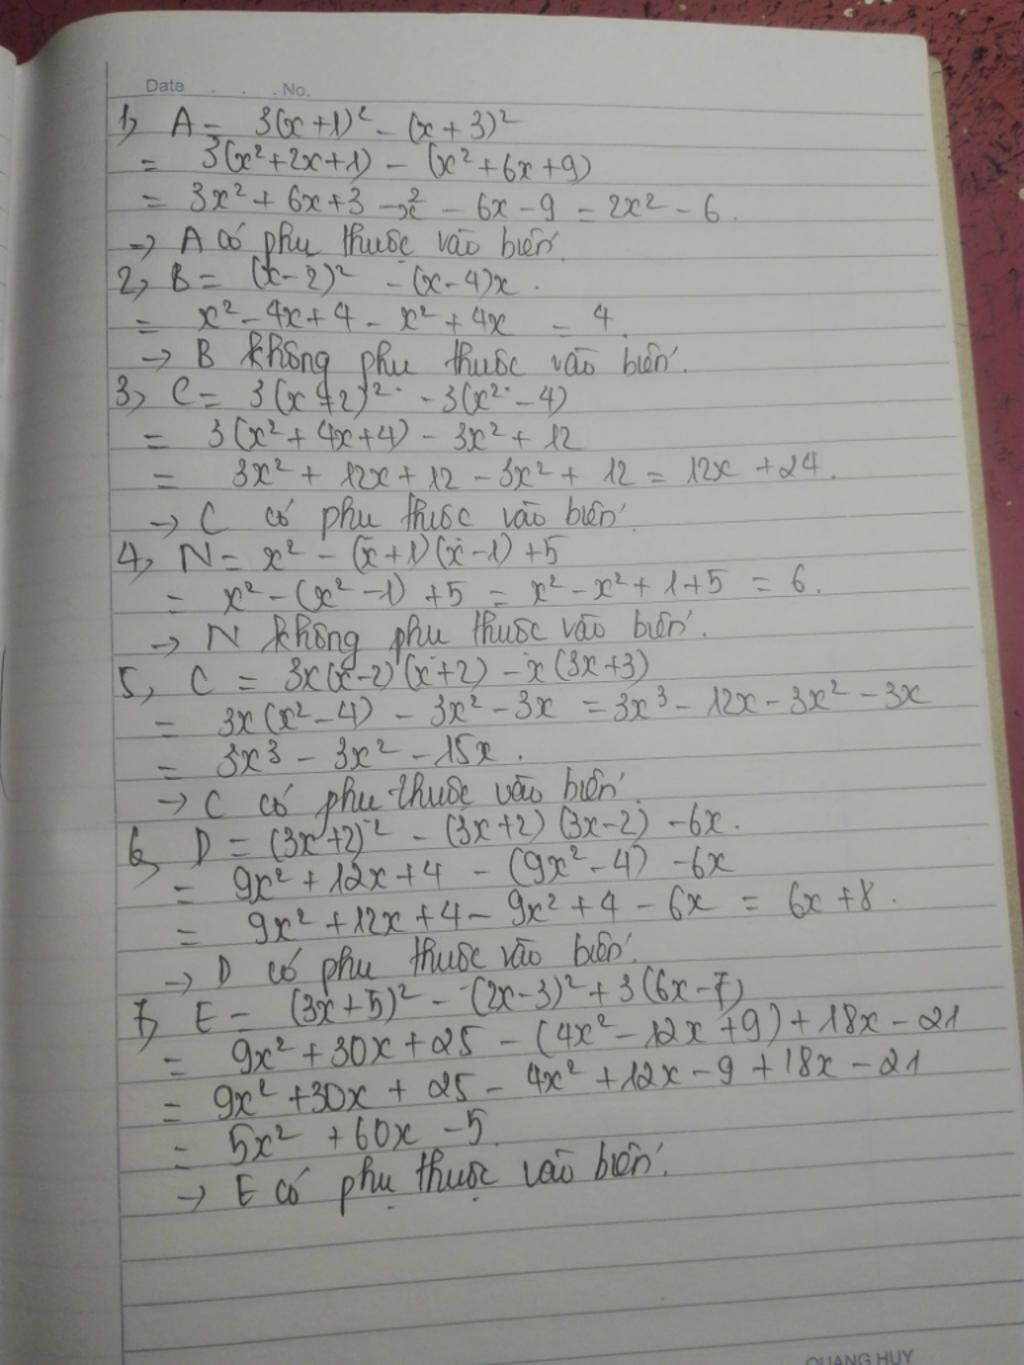 Date . . . No.
1, A = 3(x+1)² - (x+3)²
= 3(x²+2x+1) - (x²+6x+9)
= 3x² + 6x+3 -x² - 6x-9 = 2x² - 6.
→ A có phụ thuộc vào biến.
2, B = (x-2)² - (x-4)x.
= x² - 4x+4 - x² + 4x = 4.
→ B không phụ thuộc vào biến.
3, C = 3(x+2)² - 3(x² - 4)
= 3(x² + 4x+4) - 3x² + 12
= 3x² + 12x + 12 - 3x² + 12 = 12x + 24.
→ C có phụ thuộc vào biến.
4, N = x² - (x+1)(x-1) +5
= x² - (x² -1) +5 = x² - x² + 1+5 = 6.
→ N không phụ thuộc vào biến.
5, C = 3x(x-2)(x+2) - x(3x+3)
= 3x(x²-4) - 3x² - 3x = 3x³ - 12x - 3x² - 3x
= 3x³ - 3x² - 15x.
→ C có phụ thuộc vào biến.
6, D = (3x+2)² - (3x+2)(3x-2) -6x.
= 9x² + 12x+4 - (9x²-4) -6x
= 9x² + 12x+4 - 9x² + 4 - 6x = 6x + 8.
→ D có phụ thuộc vào biến.
7, E = (3x+5)² - (2x-3)² + 3(6x-7)
= 9x² + 30x + 25 - (4x² - 12x + 9) + 18x - 21
= 9x² + 30x + 25 - 4x² + 12x - 9 + 18x - 21
= 5x² + 60x - 5.
→ E có phụ thuộc vào biến.
QUANG HUY